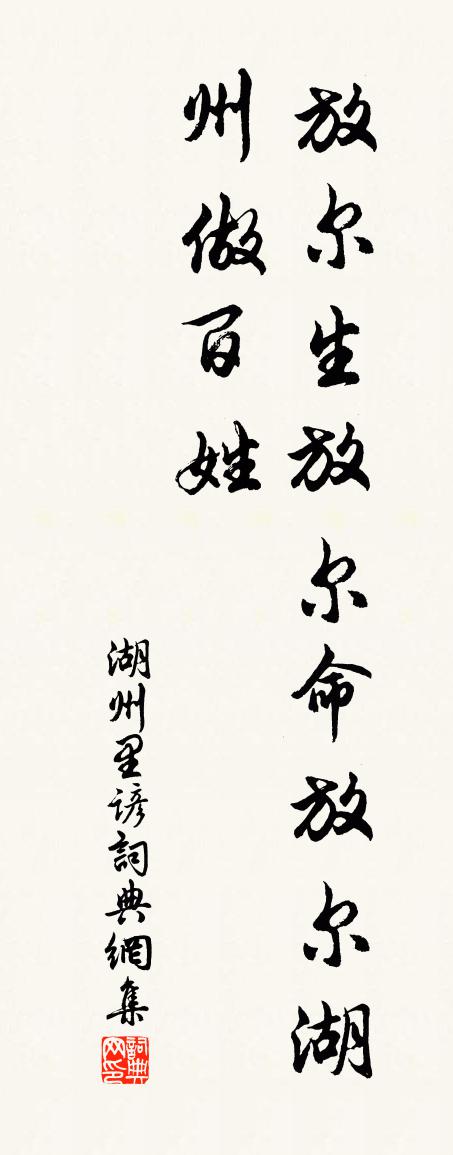 放尔生放尔命放尔湖
州做百姓
湖州里谚詞典網集
詞典
网印